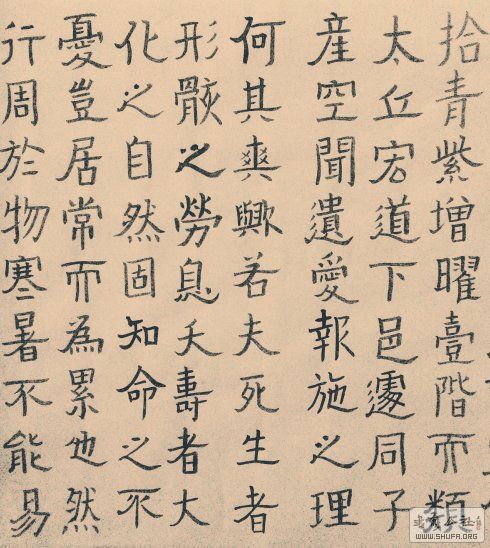 拾青紫增曜臺階而類
太丘宏道下邑遽同子
産空聞遺愛報施之理
何其爽歟若夫死生者
形骸之勞息夭壽者大
化之自然固知命之不
憂豈居常而為累也然
行周於物寒暑不能易
WWW.SHUFA.ORG